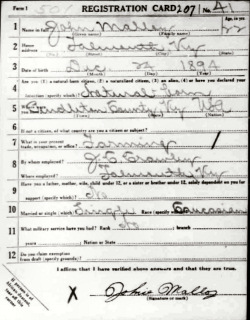 Form 1 REGISTRATION CARD 207 No. 41
1 Name in full John Malloy Age, in yrs 22
(Given name) (Family name)
2 Home address Falmouth Ky
3 Date of birth Dec 1894
(Month) (Day) (Year)
4 Are you a natural-born citizen, a naturalized citizen, an alien, or have you declared your
intention (specify which)? Natural Born
5 Where were you born? Pendleton County Ky
6 If not a citizen, of what country are you a citizen or subject?
7 What is your present trade, occupation, or office? Farming
8 By whom employed?
Where employed? Falmouth Ky
9 Have you a father, mother, wife, child under 12, or a sister or brother under 12, solely dependent on you for
support (specify which)? No
10 Married or single (which)? Single Race (specify which)? Caucasian
11 What military service have you had? Rank No branch
years Nation or State
12 Do you claim exemption from draft (specify grounds)?
I affirm that I have verified above answers and that they are true.
X John Malloy
(Signature or mark)